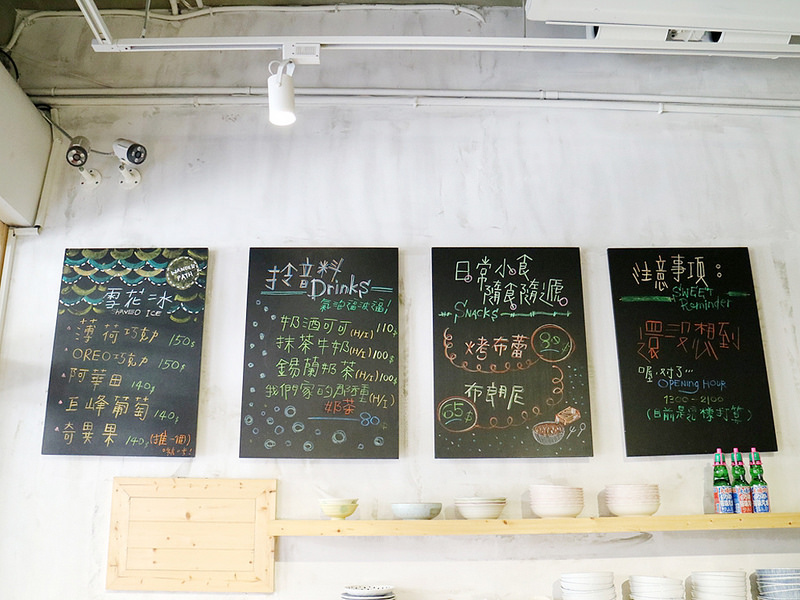 WANDER PATH
雪花冰
SHAVED ICE
薄荷巧克力 150$
OREO巧克力 150$
阿華田 140$
巨峰葡萄 140$
奇異果 140$ (推一個)
Drinks
氣泡福波福!
奶酒可可(H/I) 110$
抹茶牛奶(H/I) 100$
錫蘭奶茶(H/I) 100$
我們家的那種(H/I)
奶茶 80
日常小食
隨食隨遞
SNACKS
烤布蕾 80$
布朗尼
65$
注意事項:
SWEET
Reminder
還沒想到
喔,对了...
OPENING HOUR
1300-2100
(目前是這樣打算)